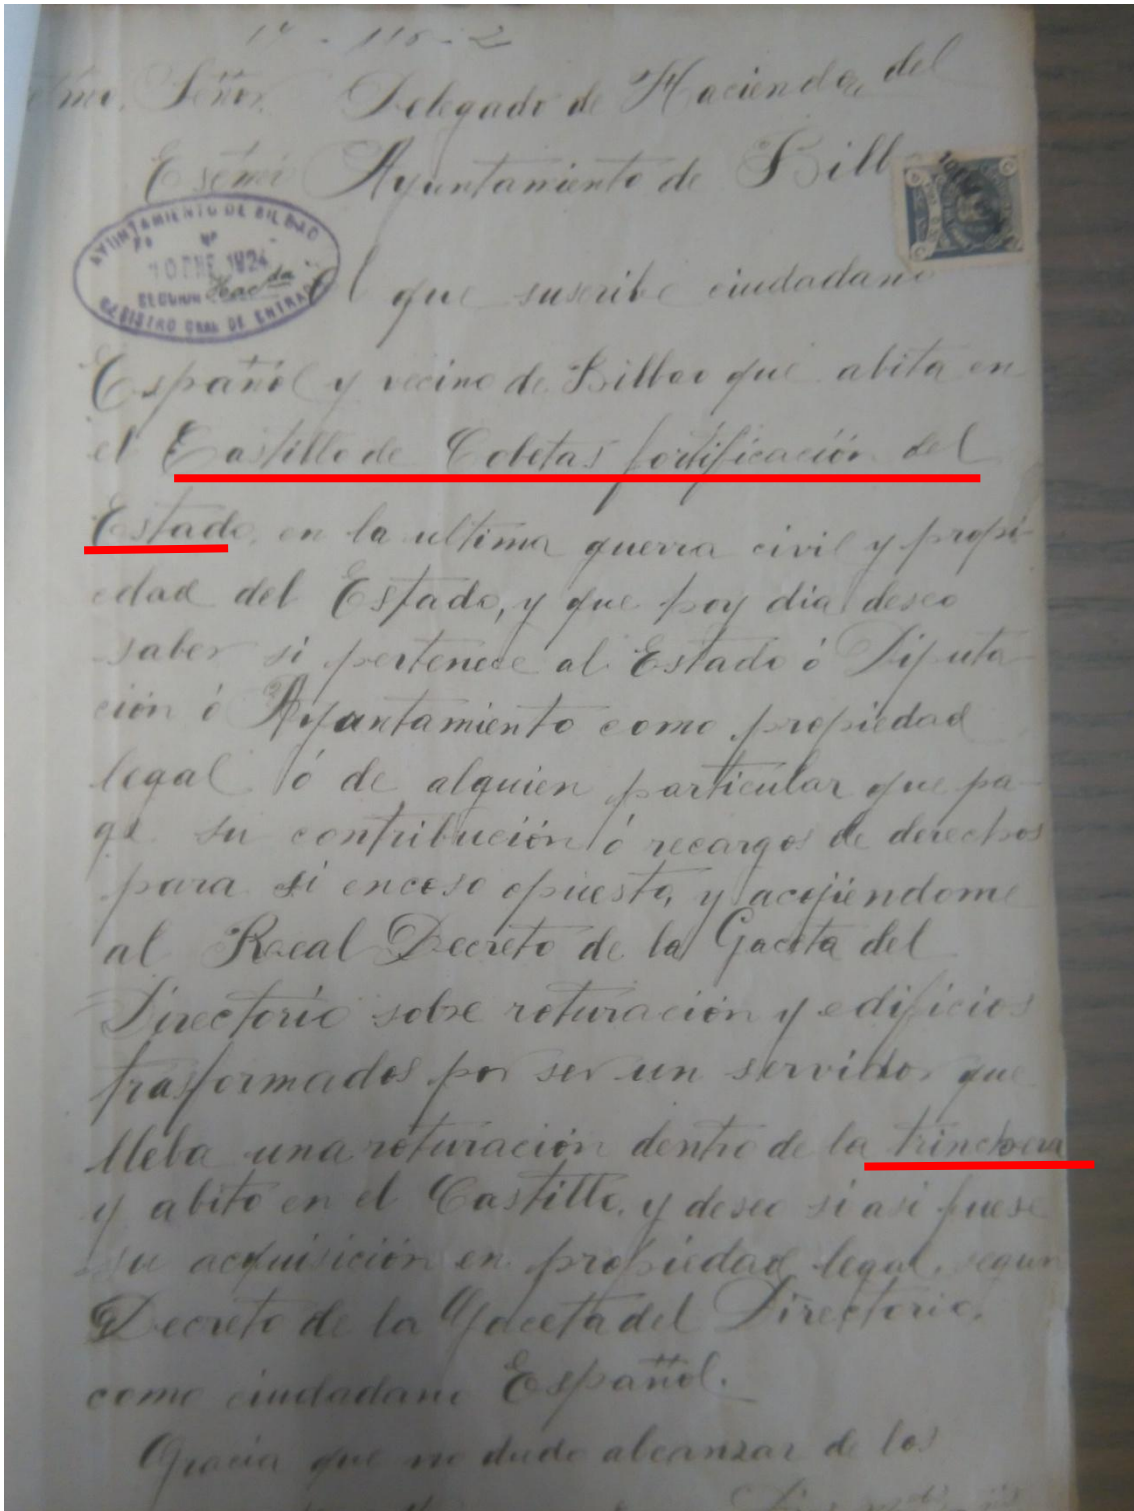 14 - 118 - 2
tmo. Señor. Delegado de Hacienda, del
Ayuntamiento de Bilb
AYUNTAMIENTO DE BILBAO
Nº
10 ENE 1924
Hacda
REGISTRO GRAL DE ENTRADA
El que suscribe ciudadano
Español y vecino de Bilbao que abita en
el Castillo de Cobetas fortificación del
Estado, en la ultima guerra civil y propi-
edad del Estado, y que hoy dia deseo
saber si pertenece al Estado ó Diputa-
ción ó Ayuntamiento como propiedad
legal ó de alguien particular que pa-
ge su contribución ó recargos de derechos
para si en caso opuesto, y acojiéndome
al Real Decreto de la Gaceta del
Directorio sobre roturación y edificios
trasformados por ser un servidor que
lleba una roturación dentro de la trinchera
y abito en el Castillo, y deseo si asi fuese
su acquisición en propiedad legal, segun
Decreto de la Gaceta del Directorio.
como ciudadano Español.
Gracia que no dudo alcanzar de los